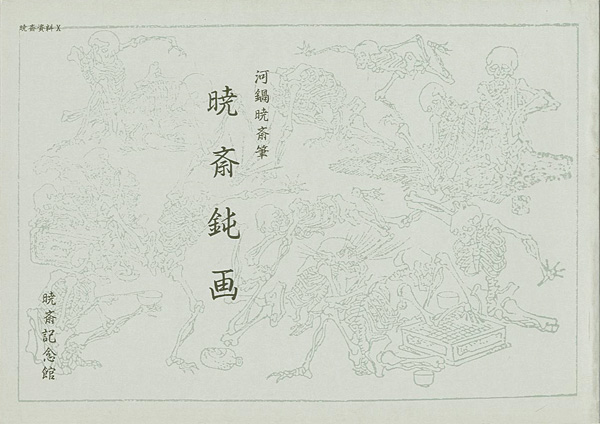 暁斎資料 X
河鍋暁斎筆
暁斎鈍画
暁斎記念館